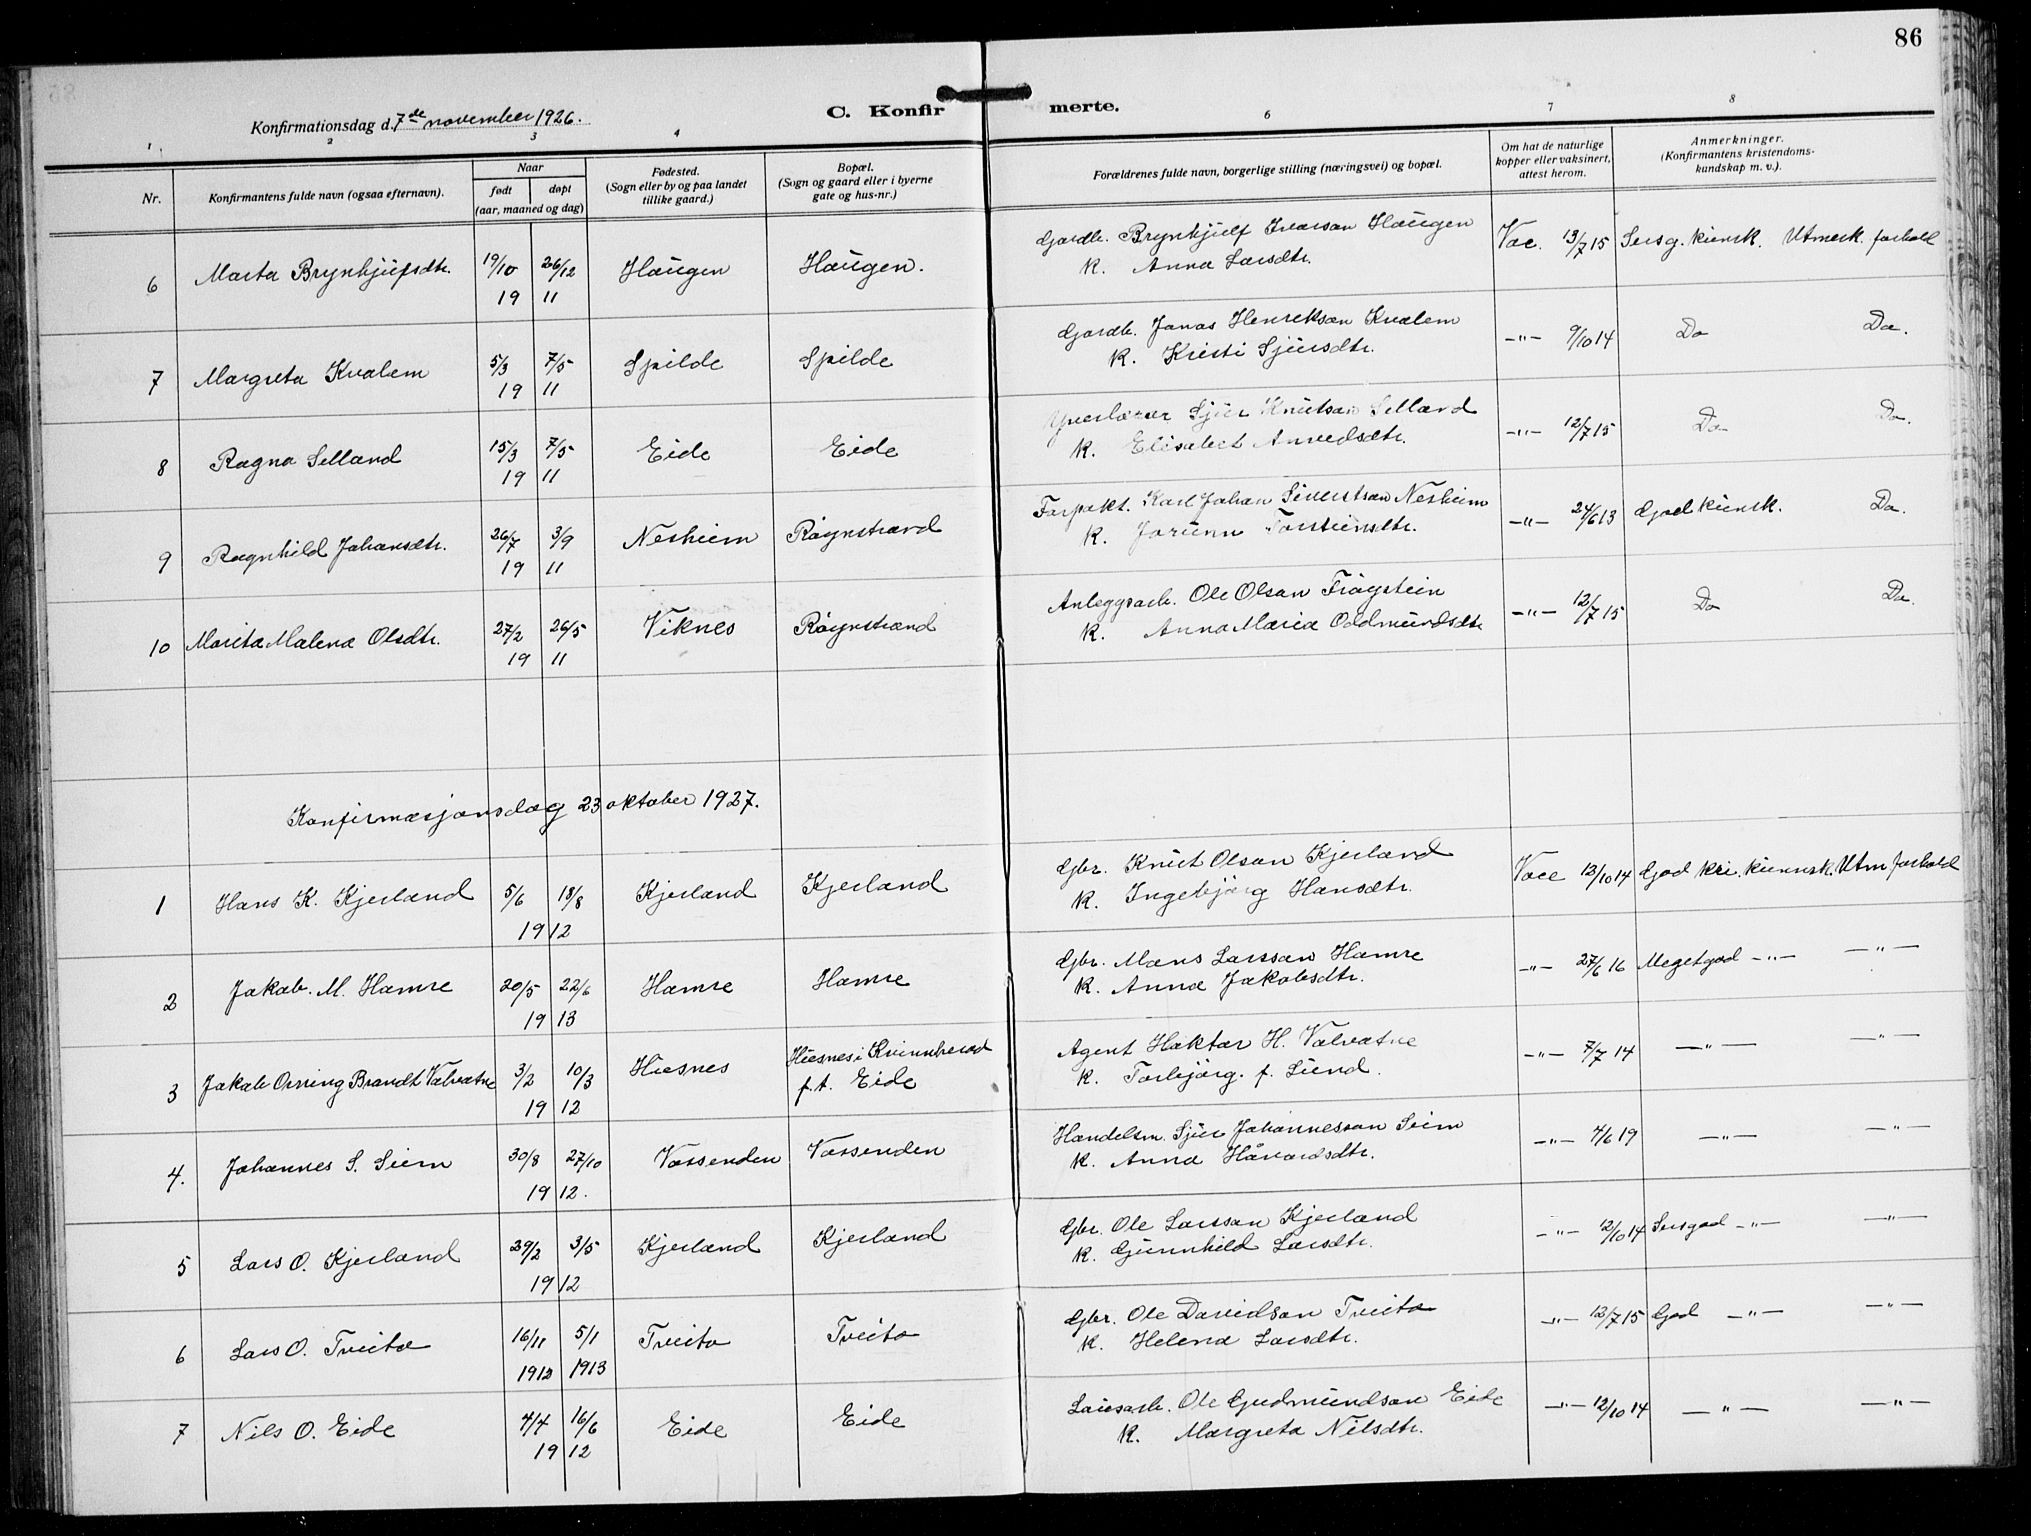 86
C. Konfirmerte.
Konfirmationsdag d. 7de november 1926.
1 2 3 4 6 7 8
Nr. Konfirmantens fulde navn (ogsaa efternavn). Naar født døpt (aar, maaned og dag) Fødested. (Sogn eller by og paa landet tillike gaard.) Bopæl. (Sogn og gaard eller i byerne gate og hus-nr.) Forældrenes fulde navn, borgerlige stilling (næringsvei) og bopæl. Om hat de naturlige kopper eller vaksinert, attest herom. Anmerkninger. (Konfirmantens kristendomskundskap m. v.).
6 Marta Brynhjulfsdtr. 19/10 26/12 Haugen Haugen. Gardbr. Brynhjulf Ivarson Haugen Vac. 13/7 15 Sersg. kunsk. Utmerk. forhold
19 11 K. Anna Larsdtr.
7 Margreta Kvalem 5/3 7/5 Spilde Spilde Gardbr. Jonas Henrikson Kvalem -"- 9/10 14 Do Do.
19 11 K. Kristi Sjursdtr.
8 Ragna Selland 15/3 7/5 Eide Eide Sjur Knutson Selland -"- 12/7 15 Do Do.
19 11 K. Elisabet
9 Ragnhild Johansdtr. 26/7 3/9 Nesheim Røynstrand Forpakt. Karl Johan Sivertson Nesheim -"- 24/6 13 God kunsk. Do.
19 11 K. Jorunn Torsteinsdtr.
10 Marita Malena Olsdtr. 27/2 26/5 Viknes Røynstrand Anleggsarb. Ole Olson Trøgstein -"- 12/7 15 Do Do.
19 11 K. Anna Maria Oddmundsdtr
Konfirmasjonsdag 23 oktober 1927.
1 Hans K. Kjerland 5/6 18/8 Kjerland Kjerland Gbr. Knut Olson Kjerland Vacc 12/10 14 God kri. kunnsk. Utm forhold
19 12 K. Ingebjørg Hansdtr.
2 Jakob. M. Hamre 20/5 22/6 Hamre Hamre Gbr. Mons Larsson Hamre -"- 27/6 16 Megetgod -"- -"-
19 13 K. Anna Jakobsdtr.
3 Jakob Orning Brandt Valvatne 3/2 10/3 Husnes Husnes i Kvinnherad f.t. Eide Agent Haktor H. Valvatne -"- 7/7 14 -"- -"-
19 12 K. Torbjørg. f. Lund.
4. Johannes S. Seim 30/8 27/10 Vassenden Vassenden Handelsm. Sjur Johannesson Seim -"- 4/6 19 -"- -"-
19 12. K. Anna Håvardsdtr.
5 Lars O. Kjerland 29/2 3/5 Kjerland Kjerland Gbr. Ole Larsson Kjerland -"- 12/10 14 Sersgod -"- -"-
19 12 K. Gunnhild Larsdtr.
6 Lars O. Tveito 16/11 5/1 Tveito Tveito Gbr. Ole Davidson Tveito -"- 12/7 15 God -"- -"-
1912 1913 K. Helena Larsdtr.
7 Nils O. Eide 4/4 16/6 Eide Eide Ole Gudmundson Eide -"- 12/10 14 -"- -"-
19 12 K. Margreta Nilsdtr.